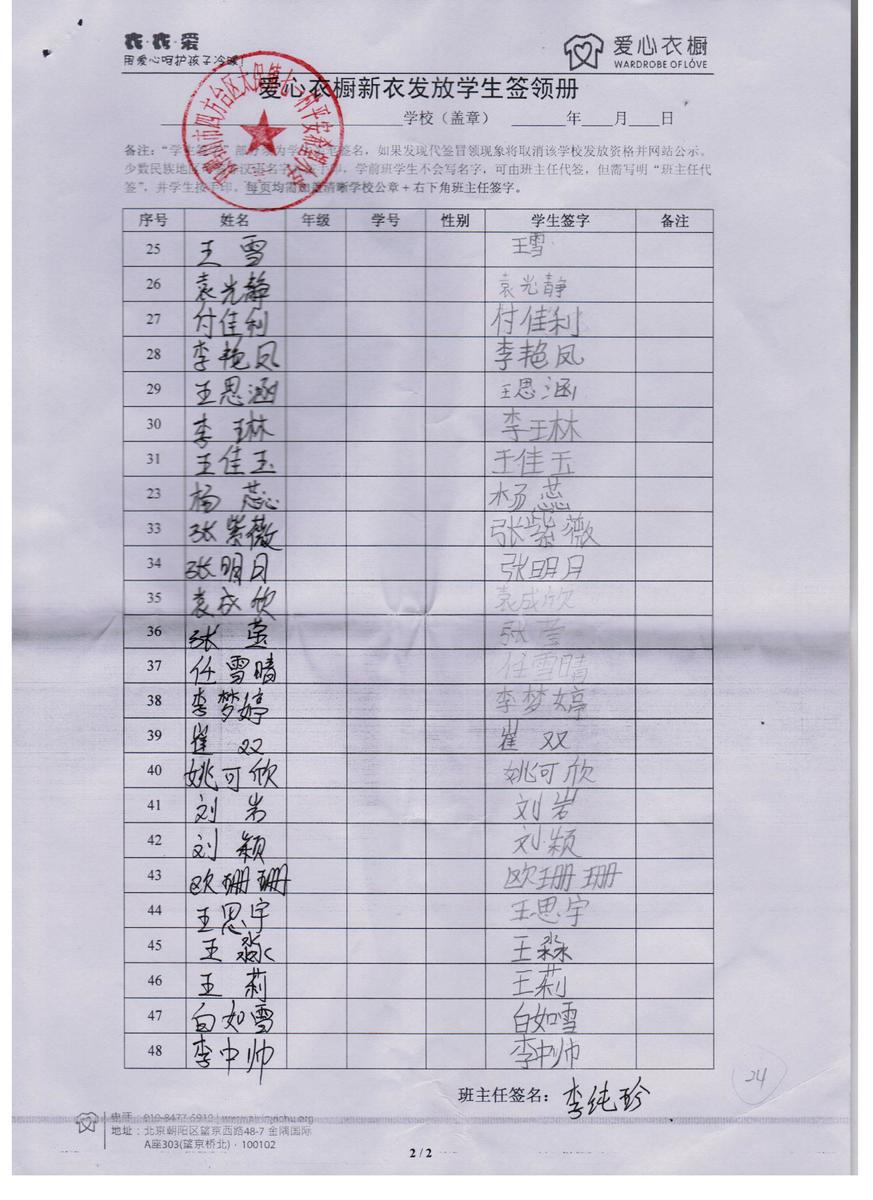 衣·衣·爱
用爱心呵护孩子冷暖！
爱心衣橱
WARDROBE OF LOVE
爱心衣橱新衣发放学生签领册
学校（盖章） 年 月 日
备注：“学生签字”部 为学 签名，如果发现代签冒领现象将取消该学校发放资格并网站公示。
少数民族地区 名字 手印，学前班学生不会写名字，可由班主任代签，但需写明“班主任代
签”，并学生按手印。每页均需加盖清晰学校公章+右下角班主任签字。
序号 姓名 年级 学号 性别 学生签字 备注
25 王雪 王雪
26 袁光静 袁光静
27 付佳利 付佳利
28 李艳凤 李艳凤
29 王思涵 王思涵
30 李琳 李琳
31 王佳玉 王佳玉
23 杨蕊 杨蕊
33 张紫薇 张紫薇
34 张明月 张明月
35 袁成欣 袁成欣
36 张莹 张莹
37 任雪晴 任雪晴
38 李梦婷 李梦婷
39 崔双 崔双
40 姚可欣 姚可欣
41 刘岩 刘岩
42 刘颖 刘颖
43 欧珊珊 欧珊珊
44 王思宇 王思宇
45 王淼 王淼
46 王莉 王莉
47 白如雪 白如雪
48 李中帅 李中帅
班主任签名：李纯珍
24
电话：010-8477-6910
地址：北京朝阳区望京西路48-7 金隅国际
A座303(望京桥北)·100102
2 / 2